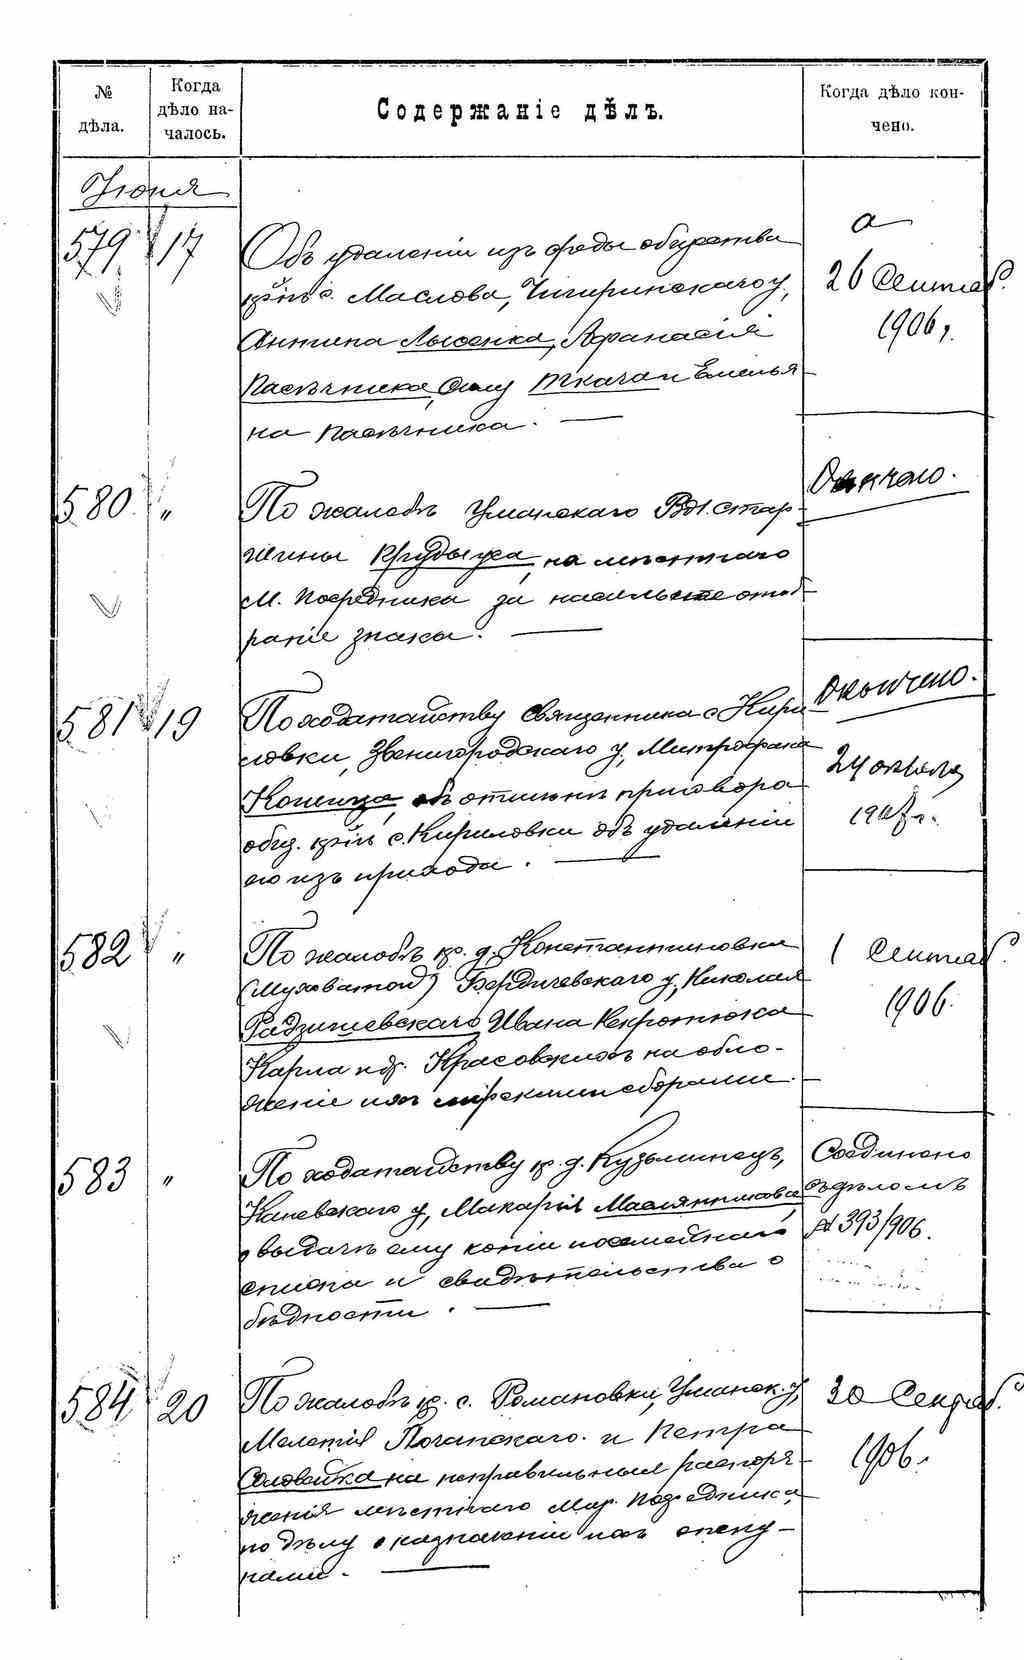 № дѣла.
Когда дѣло началось.
Содержаніе дѣлъ.
Когда дѣло кончено.
Іюня
579 17
Объ удаленіи изъ среды общества
кр-нъ с. Маслова, Чигиринскаго у,
Антипа Лысенка, Афанасія
Пасѣчника, Ѳому Ткача и Емелья-
на Пасѣчника. —
а
26 Сентяб.
1906 г.
580 "
По жалобѣ Уманскаго Вол. стар-
шины на мѣстнаго
М. Посредника за насильст. отоб-
раніе знака. —
Окончено.
581 19
По ходатайству священника с. Кири-
ловки, Звенигородскаго у, Митрофана
объ отмѣнѣ приговора
общ. кр-нъ с. Кириловки объ удаленіи
его изъ прихода. —
Окончено.
24 апрѣля
1907 г.
582 "
По жалобѣ кр. д. Константиновки
(Муховатой) Бердичевскаго у, Николая
Радзишевскаго, Ивана Некротюка
Карла и др. Красовскихъ на обло-
женіе ихъ мірскими сборами.
1 Сентяб.
1906.
583 "
По ходатайству кр. д. Кузьминецъ,
Каневскаго у, Макарія Маслянникова
о выдачѣ ему копіи посемейнаго
списка и свидѣтельства о
бѣдности. —
Соединено
съ дѣломъ
№ 393/906.
584 20
По жалобѣ кр. с. Романовки, Уманск. у,
Мелетія Почапскаго и Петра
Соловейка на неправильныя распоря-
женія мѣстнаго Мир. Посредника,
по дѣлу о назначеніи ихъ опеку-
нами. —
20 Сентяб.
1906.